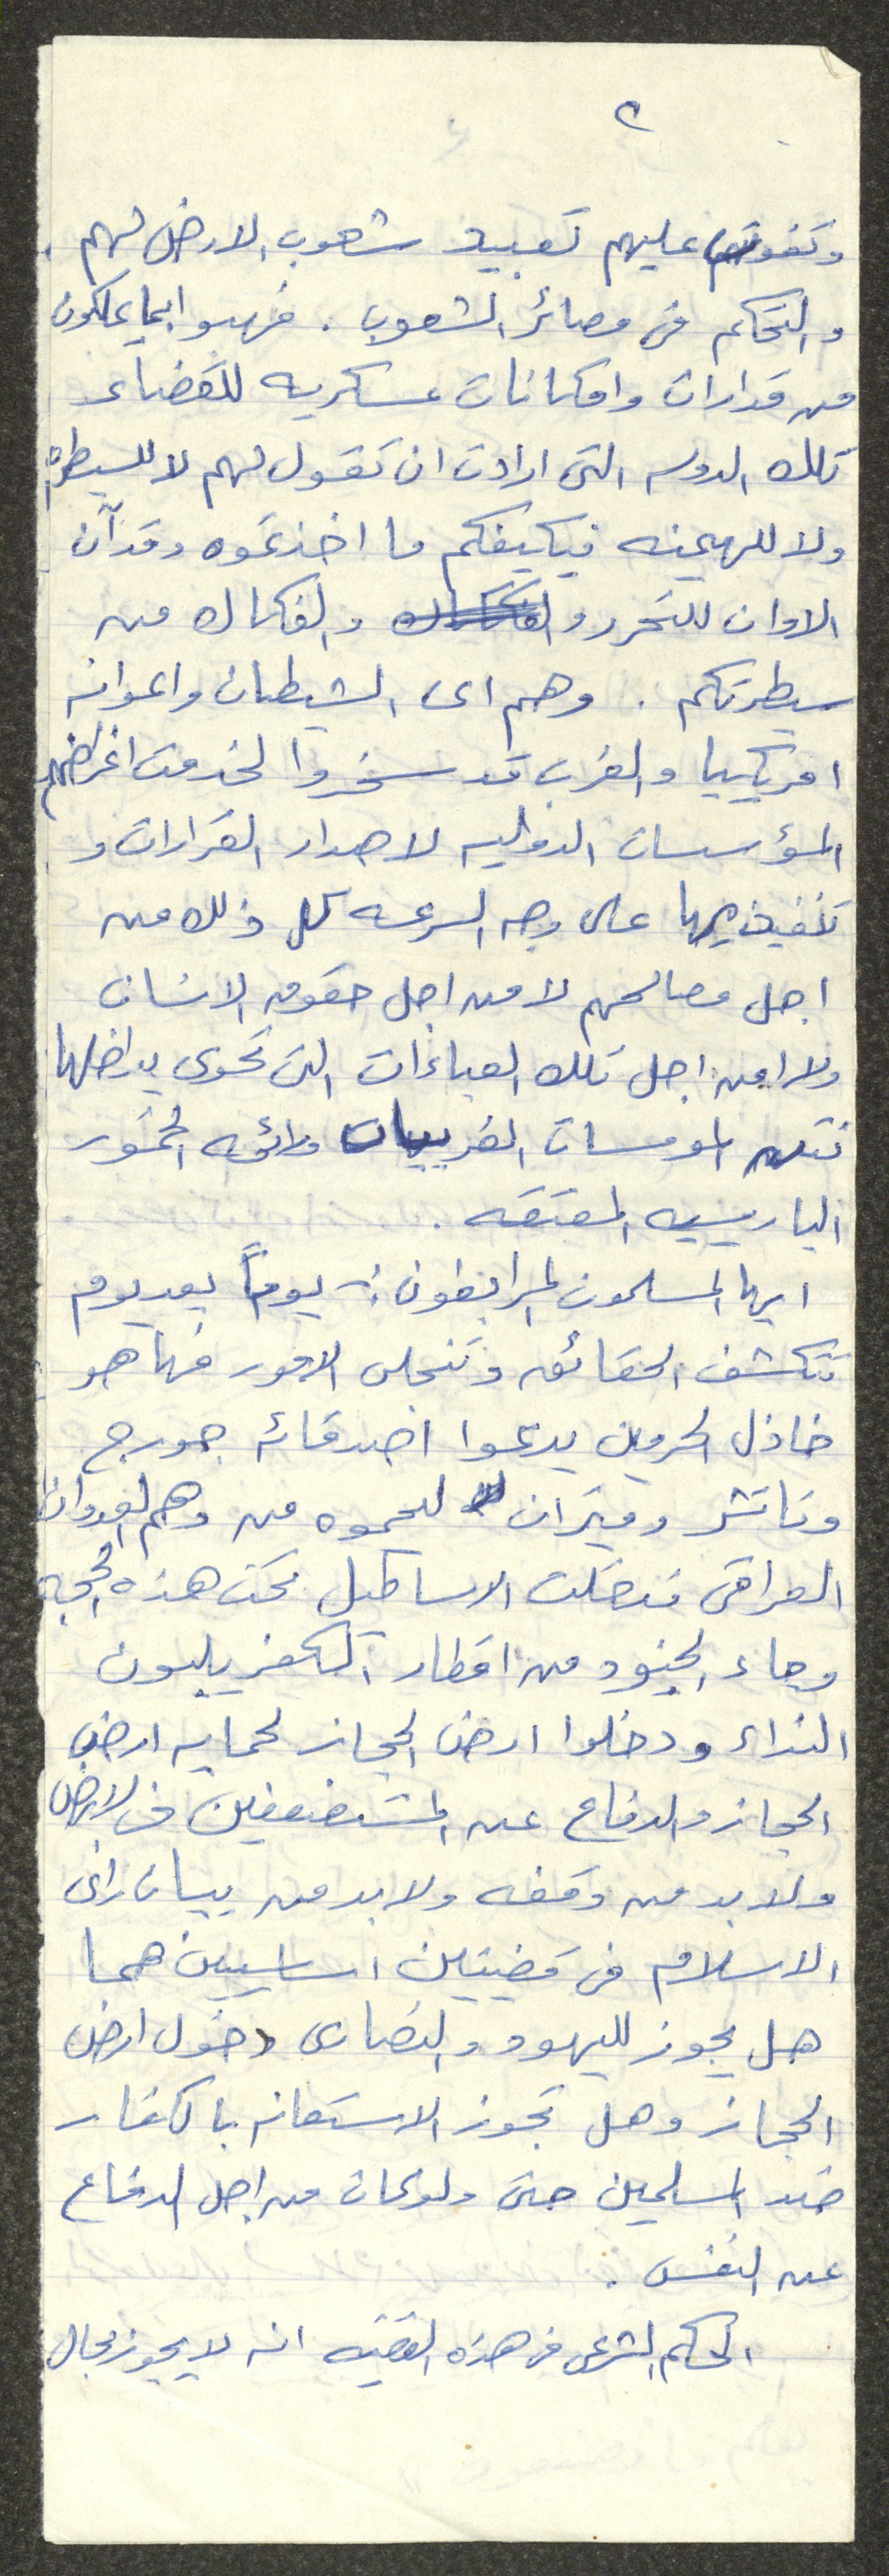 ٢
وتفوتهم عليهم تعبيد شعوب الارض لهم .
والتحكم في مصائر الشعوب . فهبوا بما يملكون
من قدارات وامكانات عسكريه للقضاء على
تلك الدوله التي ارادت ان تقول لهم لا للسيطره
ولا للهيمنه فيكيفكم ما اخذتموه وقد آن
الاوان للتحرر والفكاك من
سيطرتكم . وهم اى الشيطان واعوانه
امريكيا والغرب قد سخروا لخدمت اغراضهم
المؤسسات الدوليه لاصدار القرارات و
تنفيذيها على وجه السرعه كل ذلك من
اجل مصالحهم لا من اجل حقوق الانسان
ولا من اجل تلك العباءات التي تحوى بداخلها
نتن المومسات الغربيات ورائحه الخمور
الباريسيه المعتقه .
ايها المسلمون المرابطون :- يوماً بعد يوم
تتكشف الحقائق وتنجلى الامور فها هو
خاذل الحرمين يدعوا اصدقائه جورج
وتاتشر وميتران ليحموه من وهم العدوان
العراقي فتحركت الاساطيل تحت هذه الحجه
وجاء الجنود من اقطار الكفر يلبون
النداء ودخلوا ارض الحجاز لحمايه ارض
الحجاز والدفاع عن المستضعفين في الارض
ولا بد من وقفه ولا بد من بيان رائ
الاسلام في قضيتين اساسيين هما
هل يجوز لليهود والنصارى دخول ارض
الحجاز وهل تجوز الاستعانه بالكفار
ضد المسلمين حتى ولو كان من اجل الدفاع
عن النفس .
الحكم الشرعي في هذه القضيه انه لا يجوز بحال